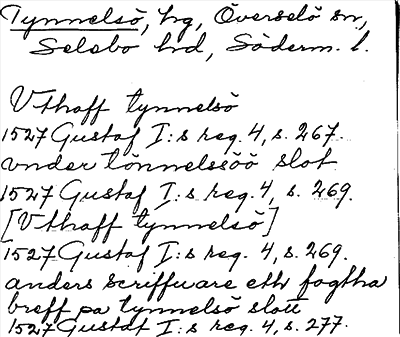 Tynnelsö, hg, Överselö sn,
Selebo hd, Söderm. l.
Vthaff tynnelsö
1527 Gustaf I:s reg. 4, s. 267.
vnder tönnelssöö slot
1527 Gustaf I:s reg. 4, s. 269.
[Vthaff tynnelsö]
1527 Gustaf I:s reg. 4, s. 269.
anders scriffuare eth fogtha
breff pa tynnelsö slott
1527 Gustaf I:s reg. 4, s. 277.